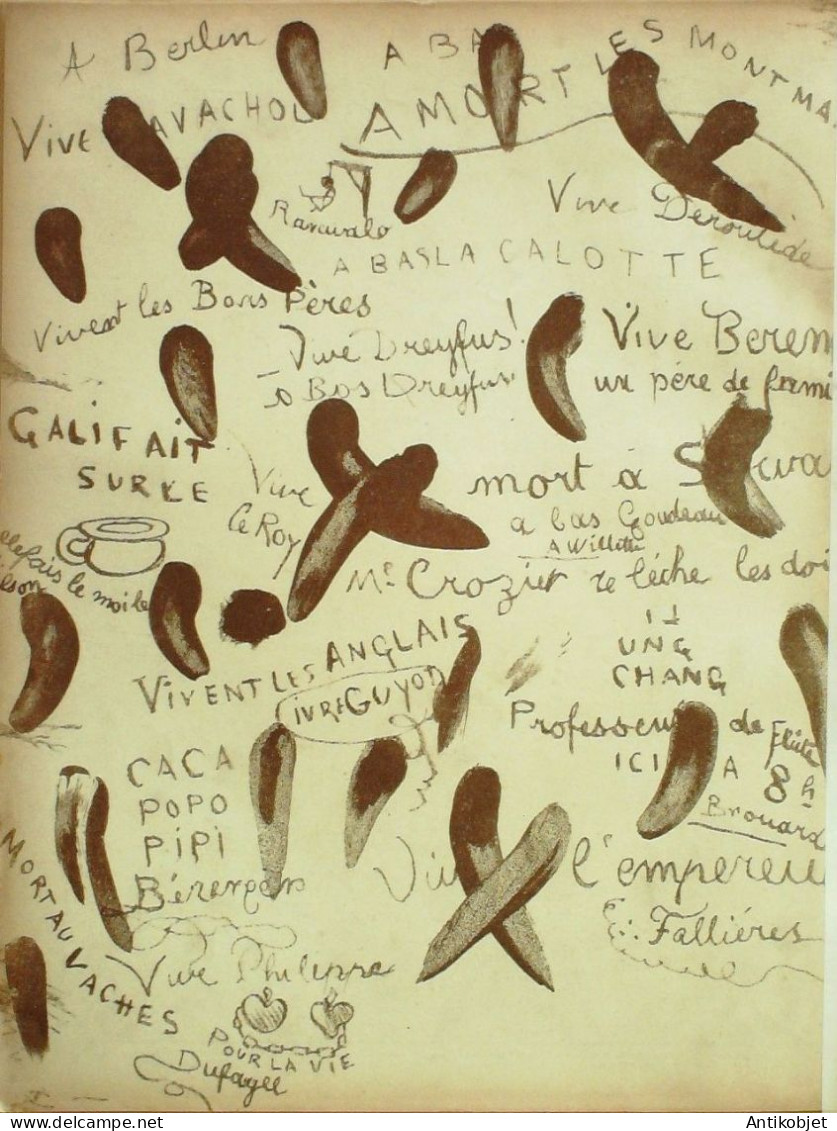 A Berlin
A BA
A MORT LES MONTMA
VIVE AVACHOL
Ranavalo
Vive Deroulède
A BAS LA CALOTTE
Vivent les Bons Pères
Vive Dreyfus!
A Bas Dreyfus
Vive Beren
un père de fami
GALIFAIT
SURLE
Vive
le Roy
mort à S
a bas Goudeau
A Willette
Mr Crozier se lèche les doi
elefais le moile
VIVENT LES ANGLAIS
IVRE GUYOT
LI
UNG
CHANG
Professeur de Flûte
ICI A 8h
Brouard
CACA
POPO
PIPI
Bérenger
Vi l'empereu
Fallières
MORT AU VACHES
Vive Philippe
POUR LA VIE
Dufayel
Antikobjet